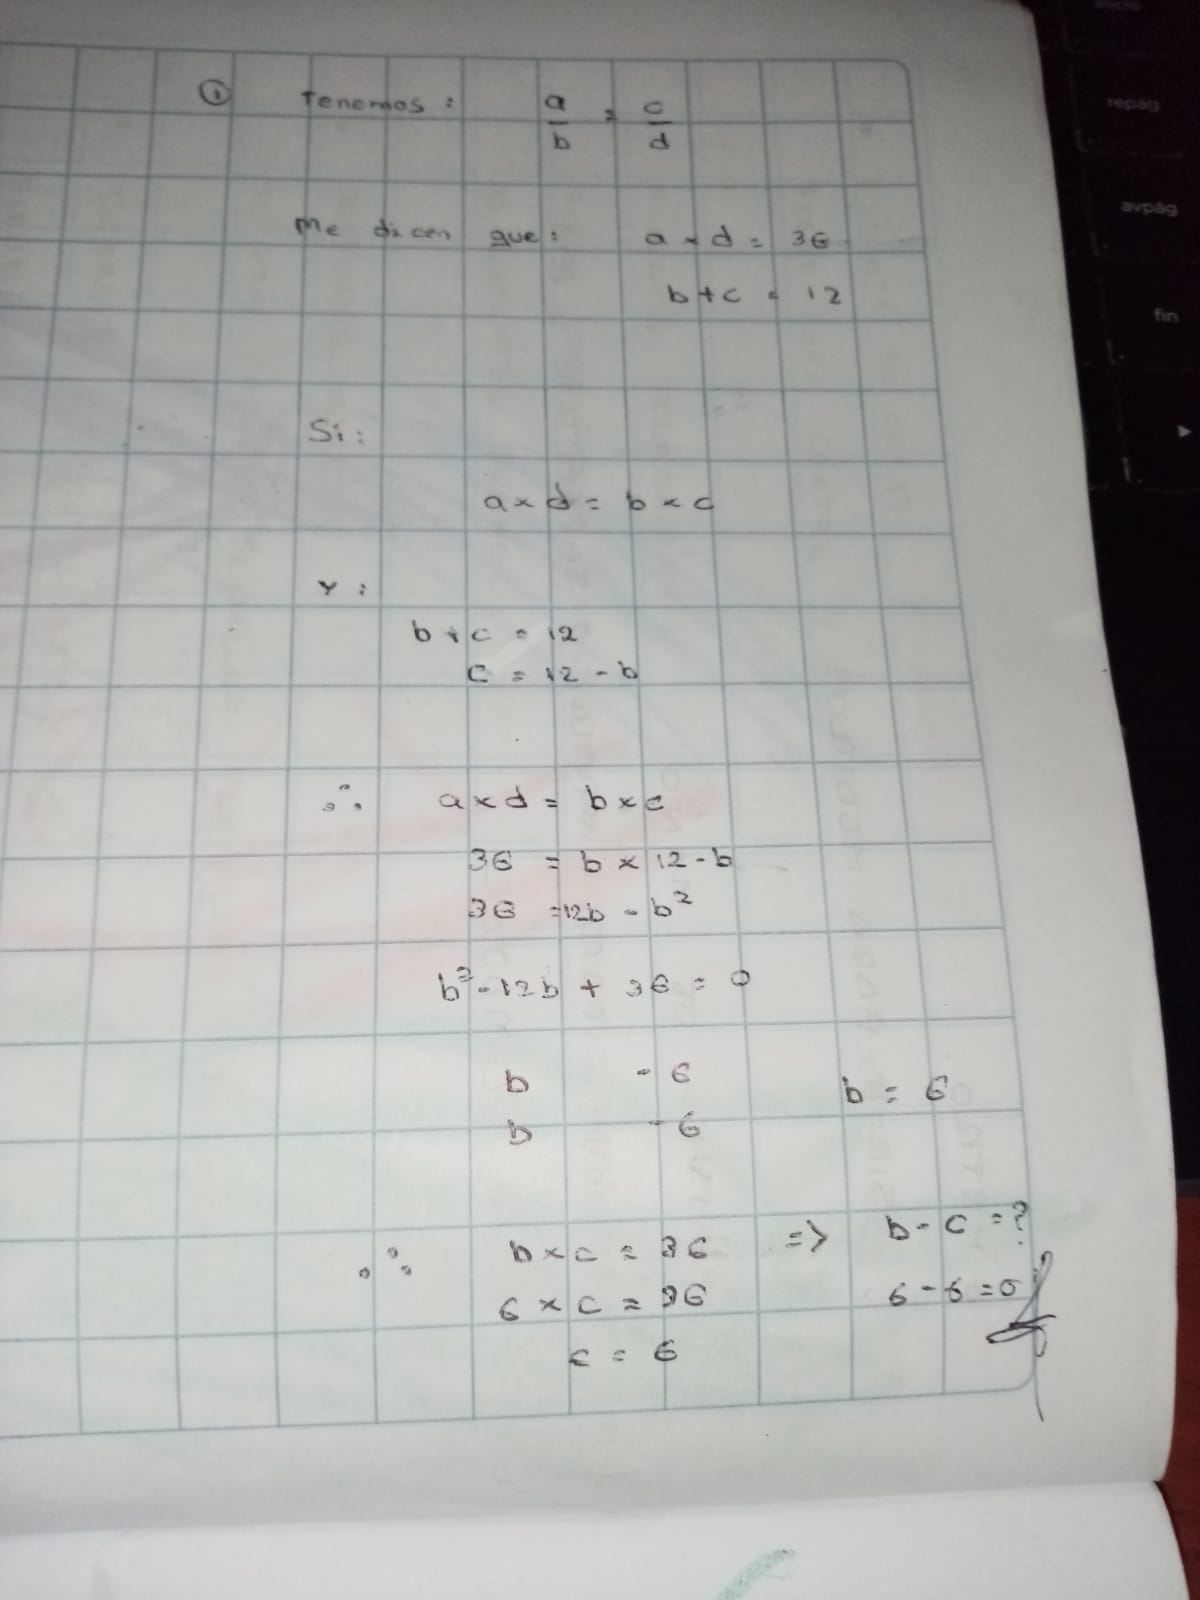 ① Tenemos: a/b = c/d
Me dicen que: a × d = 36
b + c = 12
Si:
a × d = b × c
Y:
b + c = 12
c = 12 - b
∴ a × d = b × c
36 = b × 12 - b
36 = 12b - b²
b² - 12b + 36 = 0
b - 6
b - 6
b = 6
∴ b × c = 36 => b - c = ?
6 × c = 36
6 - 6 = 0
c = 6
inicio
repág
avpág
fin